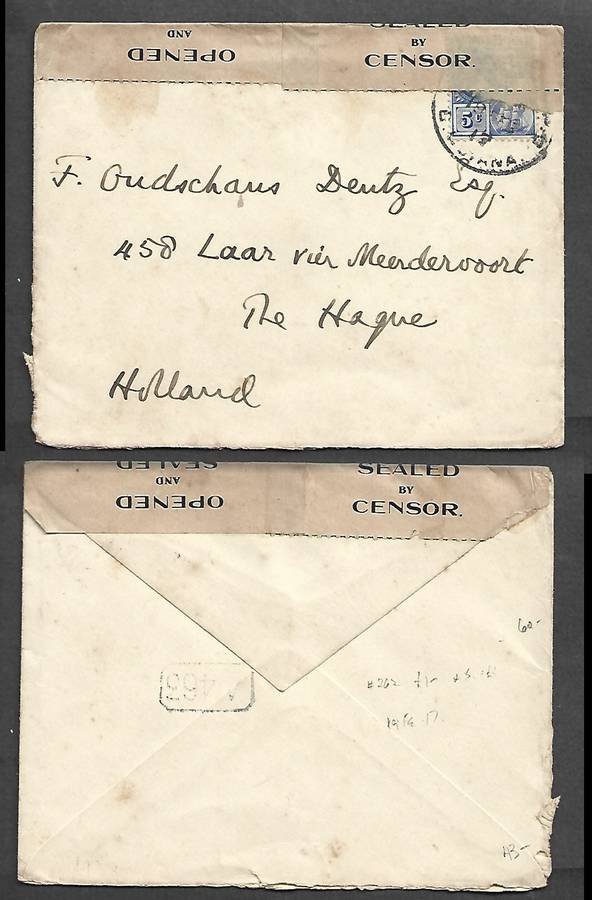 OPENED
AND
SEALED
BY
CENSOR.
5c
GUIANA
F. Oudschans Dentz Esq.
458 Laar vier Meerdervoort
The Hague
Holland
SEALED
OPENED
AND
SEALED
BY
CENSOR.
60-
463